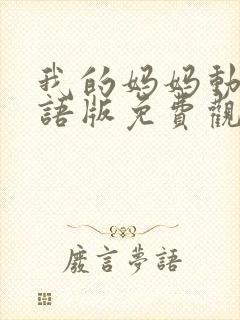 我的妈妈動
語版免費觀
廢言夢語